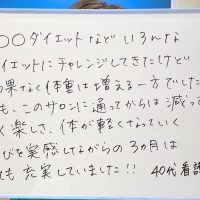 〇〇ダイエットなどいろんな
ダイエットにチャレンジしてきたけど
果なく体重は増える一方でした
も、このサロンに通ってからは減って
く楽しさ、体が軽くなっていく
びを実感しながらの3ヵ月は
ても充実していました!!
40代看護